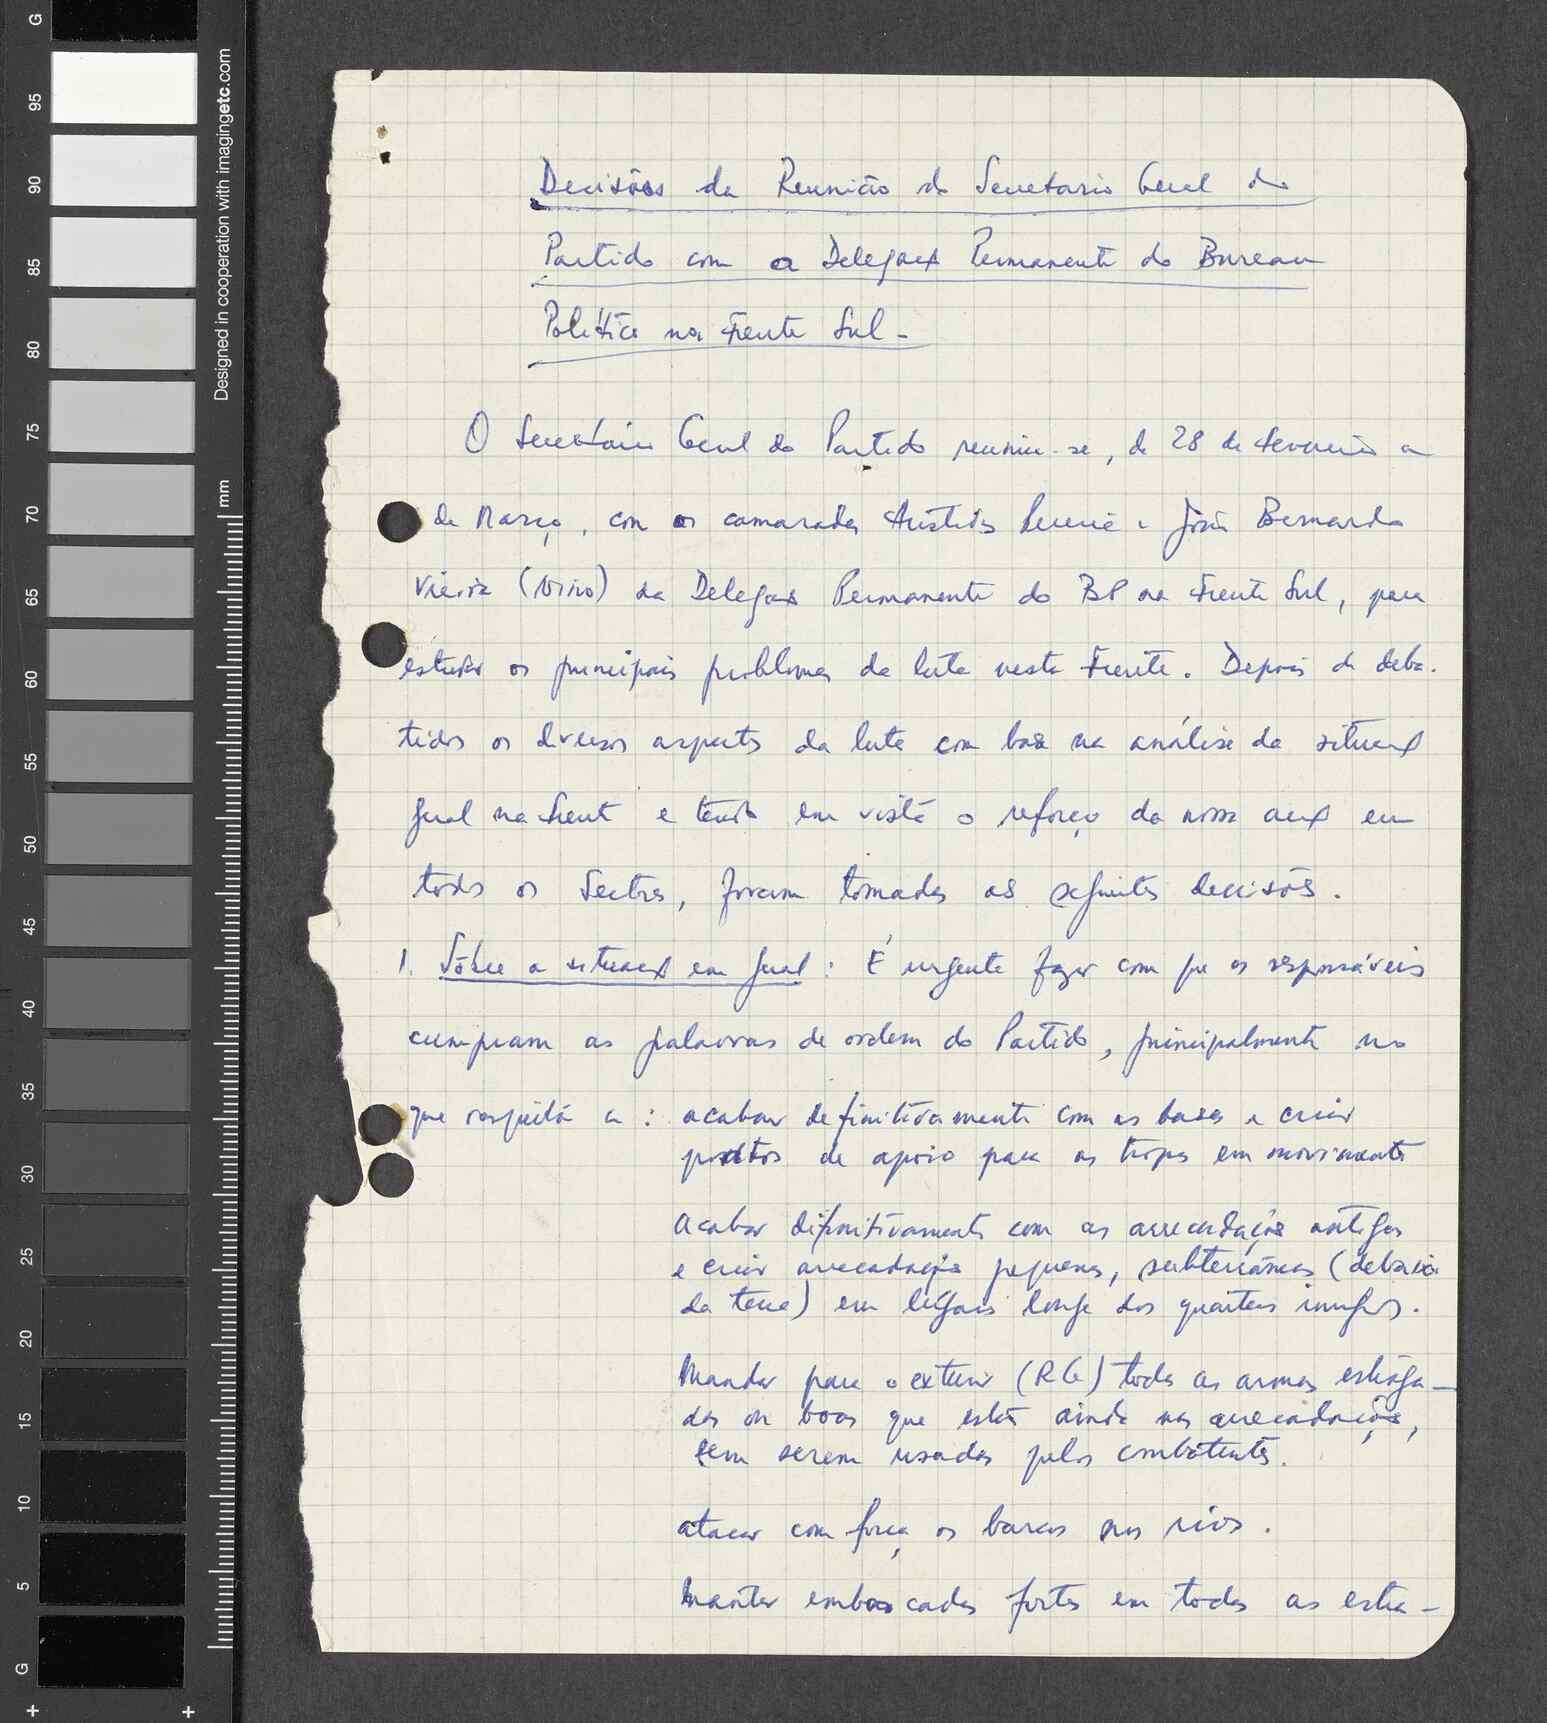 Decisões da Reunião do Secretario Geral do
Partido com a Delegaç Permanente do Bureau
Político na Frente Sul -
O Secretário Geral do Partido reuniu-se, de 28 de Fevereiro a
de Março, com os camaradas Aristides Pereira e João Bernardo
Vieira (Nino) da Delegaç Permanente do BP na Frente Sul, para
estudar os principais problemas da luta nesta Frente. Depois de deba-
tidos os diversos aspects da luta com base na análise da situaç
geral na Frente e tendo em vista o reforço da nossa acç em
todos os Sectores, foram tomadas as seguintes decisões.
1. Sôbre a situaç em geral : É urgente fazer com que os responsáveis
cumpram as palavras de ordem do Partido, principalmente no
que respeita a : acabar definitivamente com as bases e criar
pontos de apoio para as tropas em movimento
acabar difinitivamente com as arrecadações antigas
e criar arrecadações pequenas, subterrâneas (debaixo
da terra) em lugares longe dos quarteis inimigos.
Mandar para o exterior (RG) todas as armas estraga-
das ou boas que estão ainda nas arrecadações,
sem serem usadas pelos combatentes.
atacar com força os barcos nos rios.
Manter emboscadas fortes em todas as estra-
G
95
90
85
80
75
70
65
60
55
50
45
40
35
30
25
20
15
10
5
G
Designed in cooperation with imagingetc.com
mm